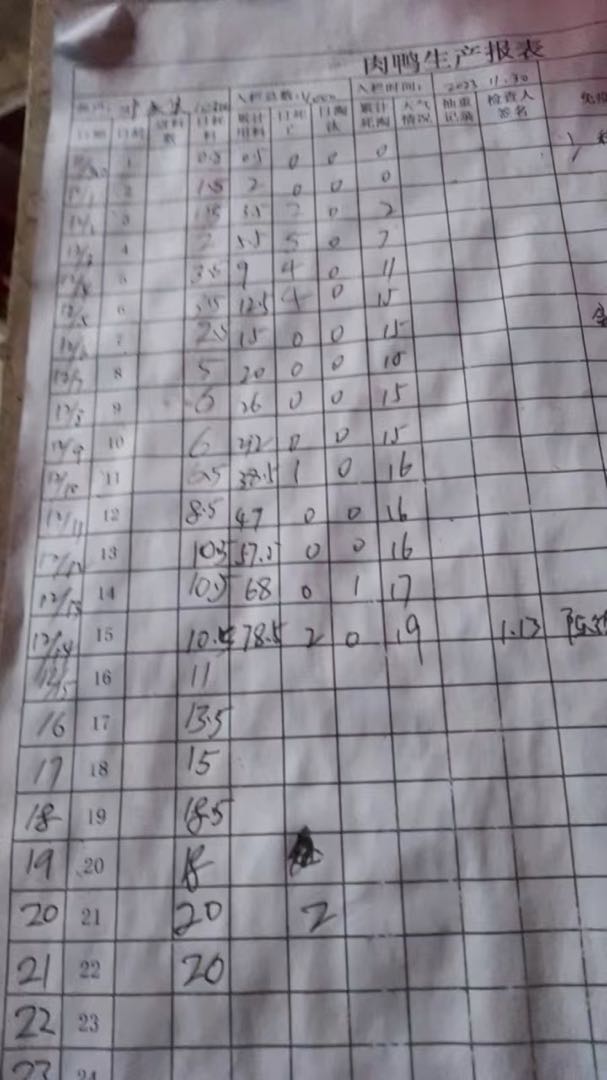 肉鸭生产报表
入栏总数: 入栏时间: 2023 11.30
日龄 日耗料 累计用料 日死亡 日淘汰 累计死淘 天气情况 抽重记录 检查人签名 免疫
1 0.5 0.5 0 0 0
2 1.5 2 0 0 0
3 1.5 3.5 2 0 2
4 2 5.5 5 0 7
5 3.5 9 4 0 11
6 3.5 12.5 4 0 15
7 2.5 15 0 0 15
12/7 8 5 20 0 0
12/8 9 6 26 0 0 15
12/9 10 6 32 0 0 15
12/10 11 6.5 38.5 1 0 16
12/11 12 8.5 47 0 0 16
12/12 13 10.5 57.5 0 0 16
12/13 14 10.5 68 0 1 17
12/14 15 10.5 78.5 2 0 19 1.13
12/15 16 11
16 17 13.5
17 18 15
18 19 18.5
19 20 18
20 21 20 2
21 22 20
22 23
23 24